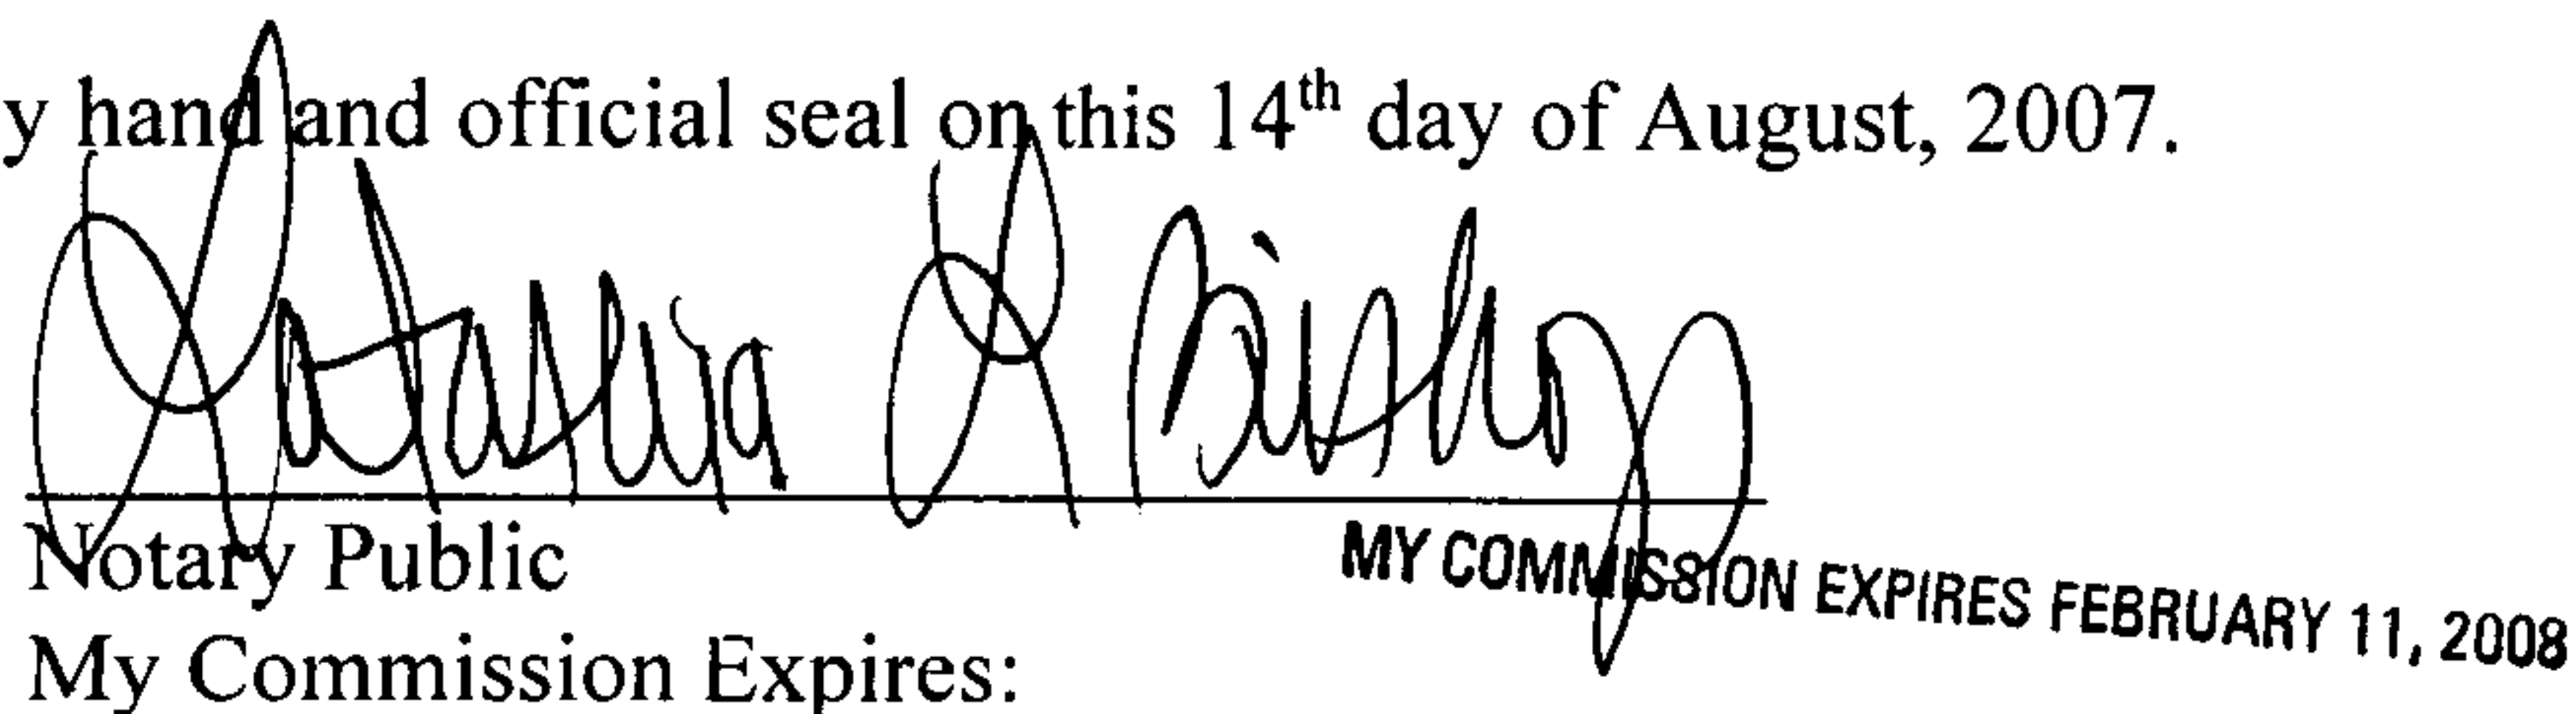 y hand and official seal on this 14th day of August, 2007.
Latasha L Bishop
Notary Public
MY COMMISSION EXPIRES FEBRUARY 11, 2008
My Commission Expires: